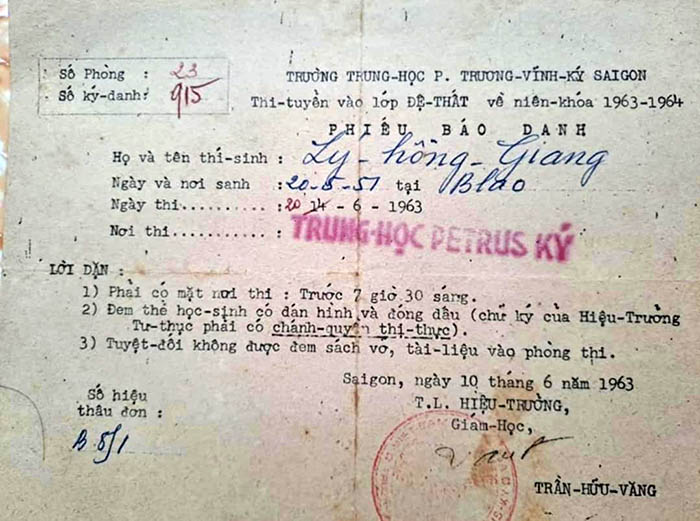 Số Phòng : 23
Số ký-danh: 915
TRƯỜNG TRUNG-HỌC P. TRƯƠNG-VĨNH-KÝ SAIGON
Thi-tuyển vào lớp ĐỆ-THẤT về niên-khóa 1963-1964
PHIẾU BÁO DANH
Họ và tên thí-sinh : Lý-hồng-Giang
Ngày và nơi sanh : 20-5-51 tại Blao
Ngày thi..........: 20 14 - 6 - 1963
Nơi thi...........: TRUNG-HỌC PETRUS KÝ
LỜI DẶN :
1) Phải có mặt nơi thi : Trước 7 giờ 30 sáng.
2) Đem thẻ học-sinh có dán hình và đóng dấu (chữ ký của Hiệu-Trưởng
Tư-thục phải có chánh-quyền thị-thực).
3) Tuyệt-đối không được đem sách vở, tài-liệu vào phòng thi.
Saigon, ngày 10 tháng 6 năm 1963
T.L. HIỆU-TRƯỞNG,
Giám-Học,
Số hiệu
thâu đơn :
B 8/1
TRẦN-HỮU-VĂNG